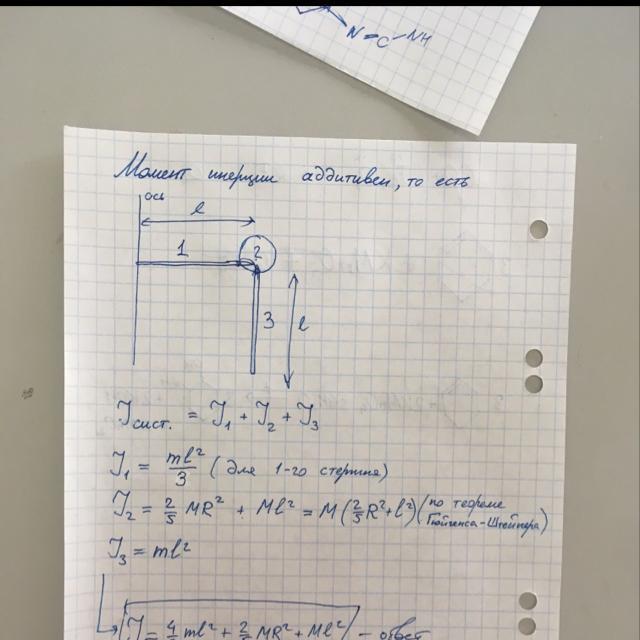 N=C-NH
Момент инерции аддитивен, то есть
ось
l
1
2
3
l
J сист. = J₁ + J₂ + J₃
J₁ = ml²/3 (для 1-го стержня)
J₂ = 2/5 MR² + Ml² = M(2/5 R² + l²) (по теореме Гюйгенса-Штейнера)
J₃ = ml²
J = 4/3 ml² + 2/5 MR² + Ml² - ответ